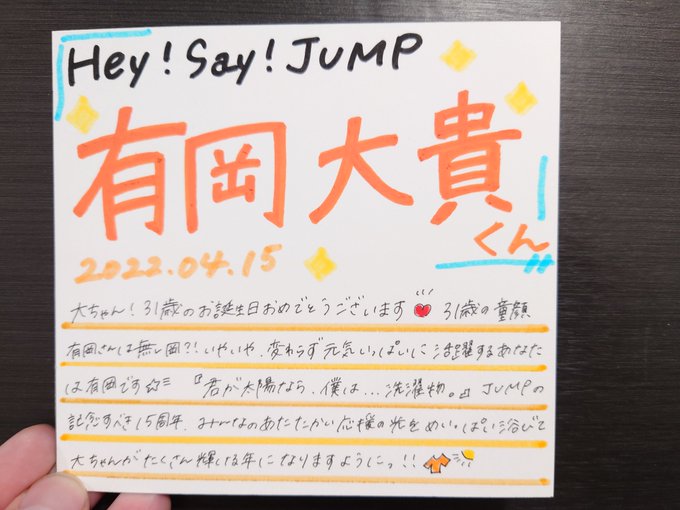 Hey!Say!JUMP
有岡大貴
くん
2022.04.15
大ちゃん!31歳のお誕生日おめでとうございます 31歳の童顔
有岡さんは無し岡?!いやいや、変わらず元気いっぱいに活躍するあなた
は有岡です☆ 『君が太陽なら、僕は...洗濯物。』JUMPの
記念すべき15周年、みんなのあたたかい応援の光をめいっぱい浴びて
大ちゃんがたくさん輝ける年になりますようにっ!!